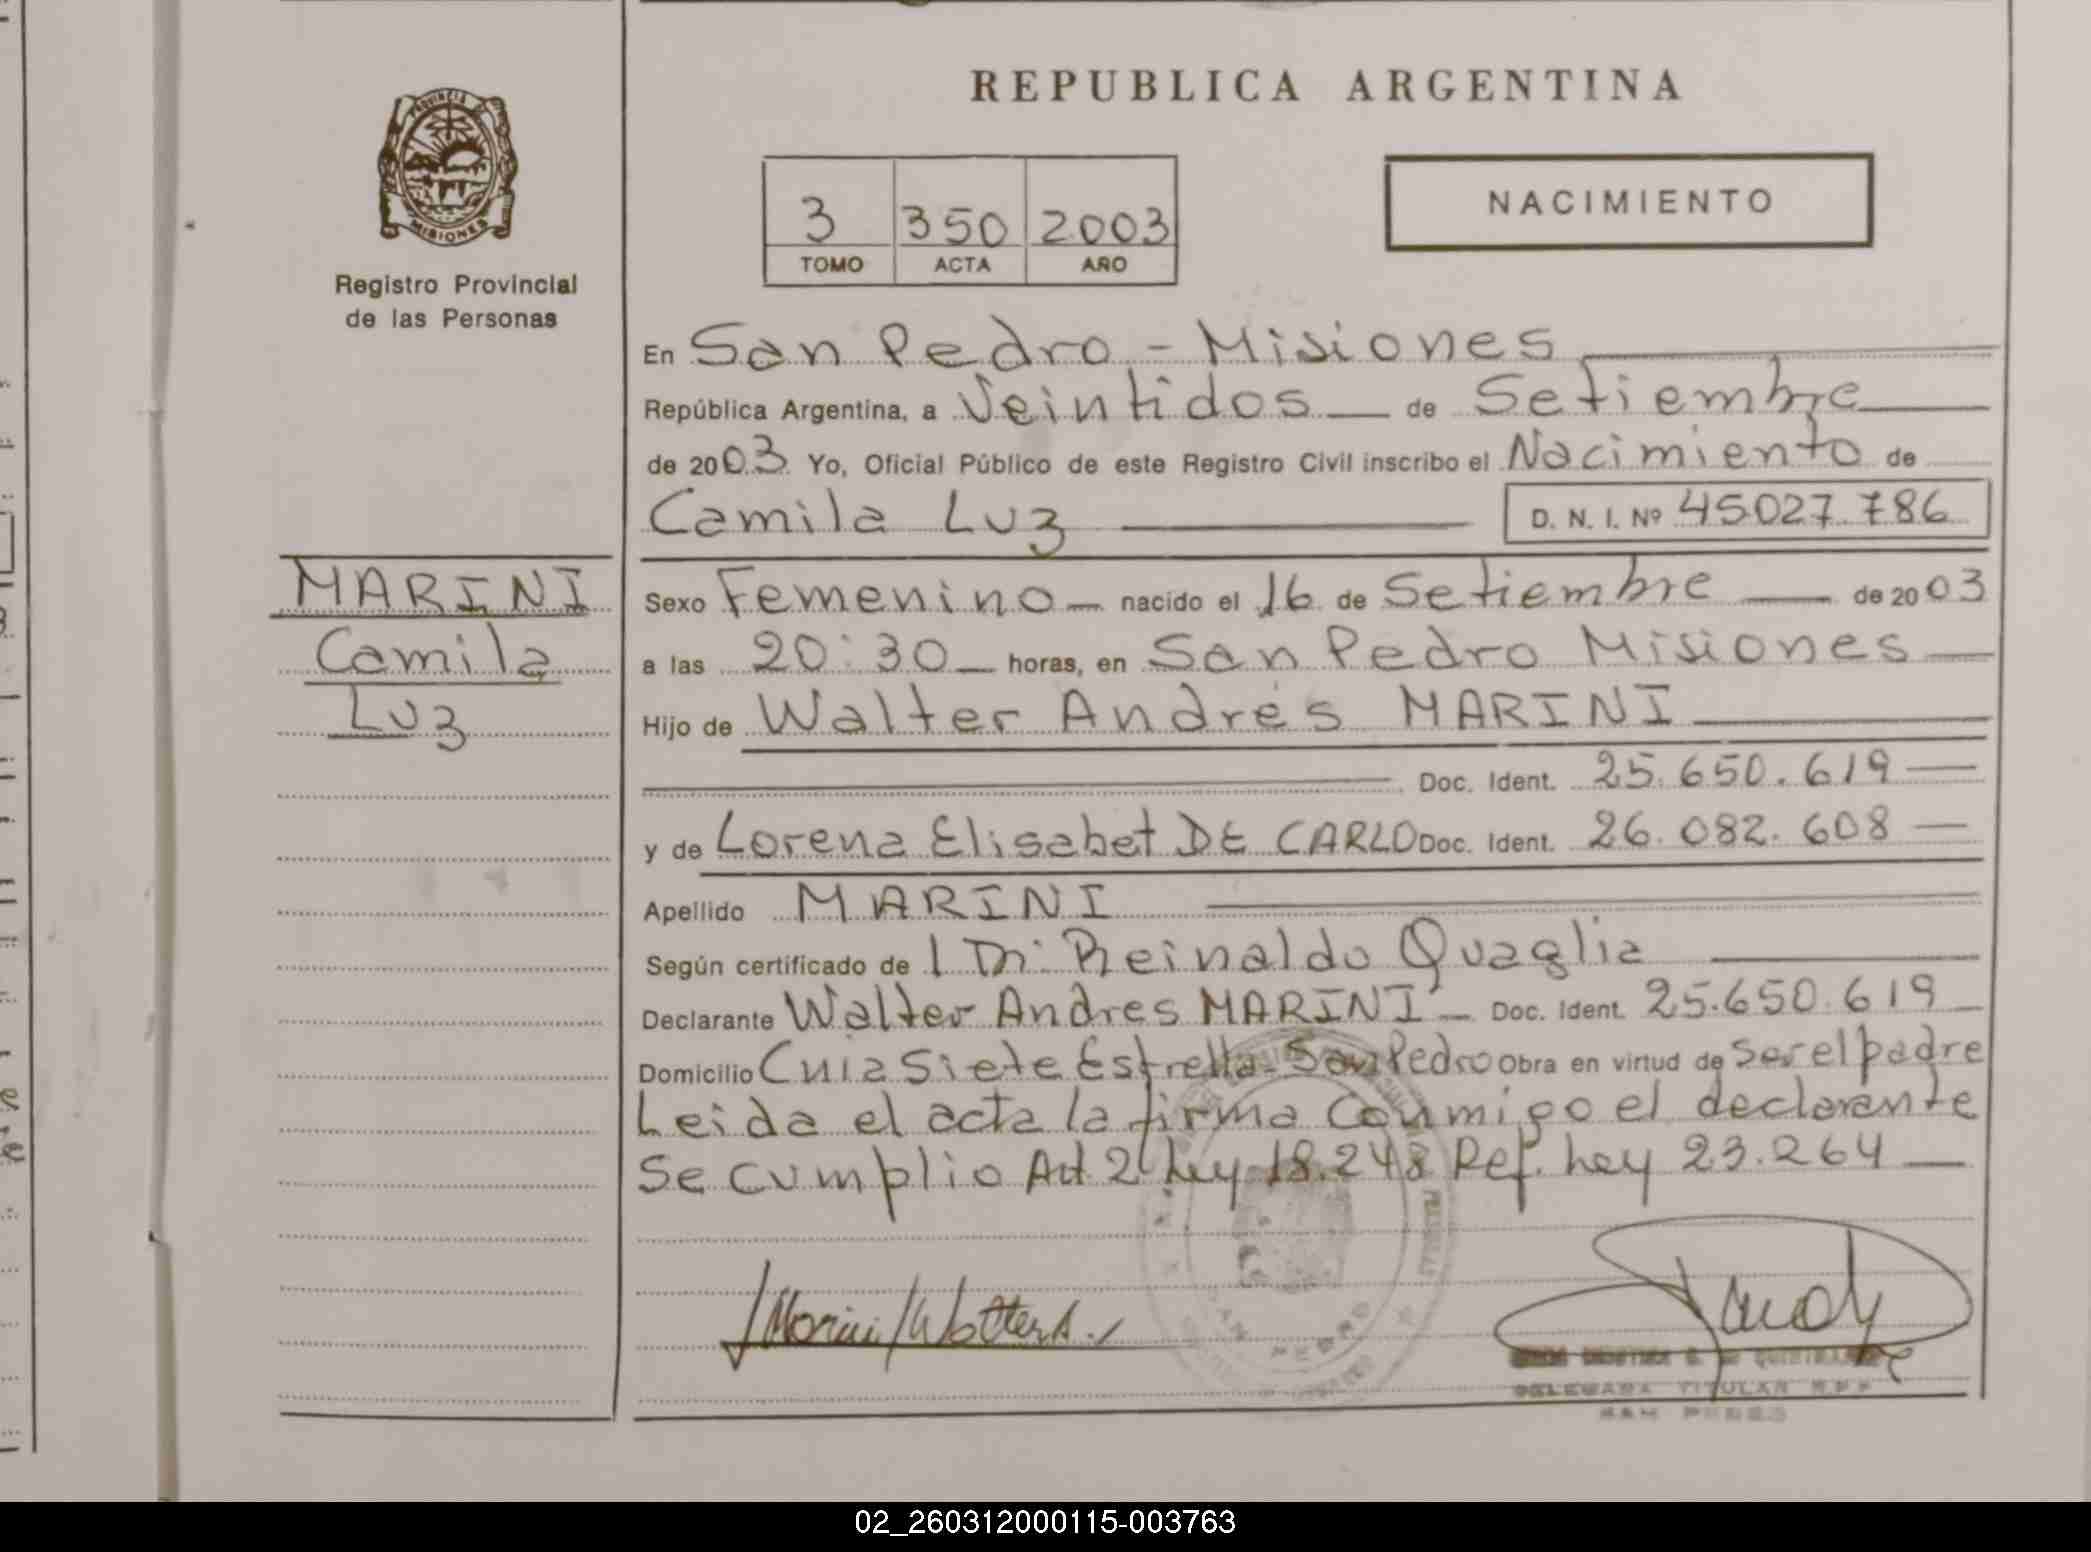 REPUBLICA ARGENTINA
PROVINCIA DE
MISIONES
Registro Provincial
de las Personas
3 350 2003
TOMO ACTA AÑO
NACIMIENTO
En San Pedro - Misiones
República Argentina, a Veintidos de Setiembre
de 2003 Yo, Oficial Público de este Registro Civil inscribo el Nacimiento de
Camila Luz D. N. I. Nº 45027.786
MARINI
Camila
Luz
Sexo Femenino nacido el 16 de Setiembre de 2003
a las 20:30 horas, en San Pedro Misiones
Hijo de Walter Andrés MARINI
Doc. Ident. 25.650.619
y de Lorena Elisabet DE CARLO Doc. Ident. 26.082.608
Apellido MARINI
Según certificado de Reinaldo Quaglia
Declarante Walter Andres MARINI Doc. Ident. 25.650.619
Domicilio Cuia Siete Estrella - San Pedro Obra en virtud de ser el padre
Leida el acta la firma conmigo el declarante
Se cumplio Art 2 Ley 18.248 Ref. Ley 23.264
SAN PEDRO
Marini Walter A.
DELEGADA TITULAR R.P.P.
SAN PEDRO
02_260312000115-003763